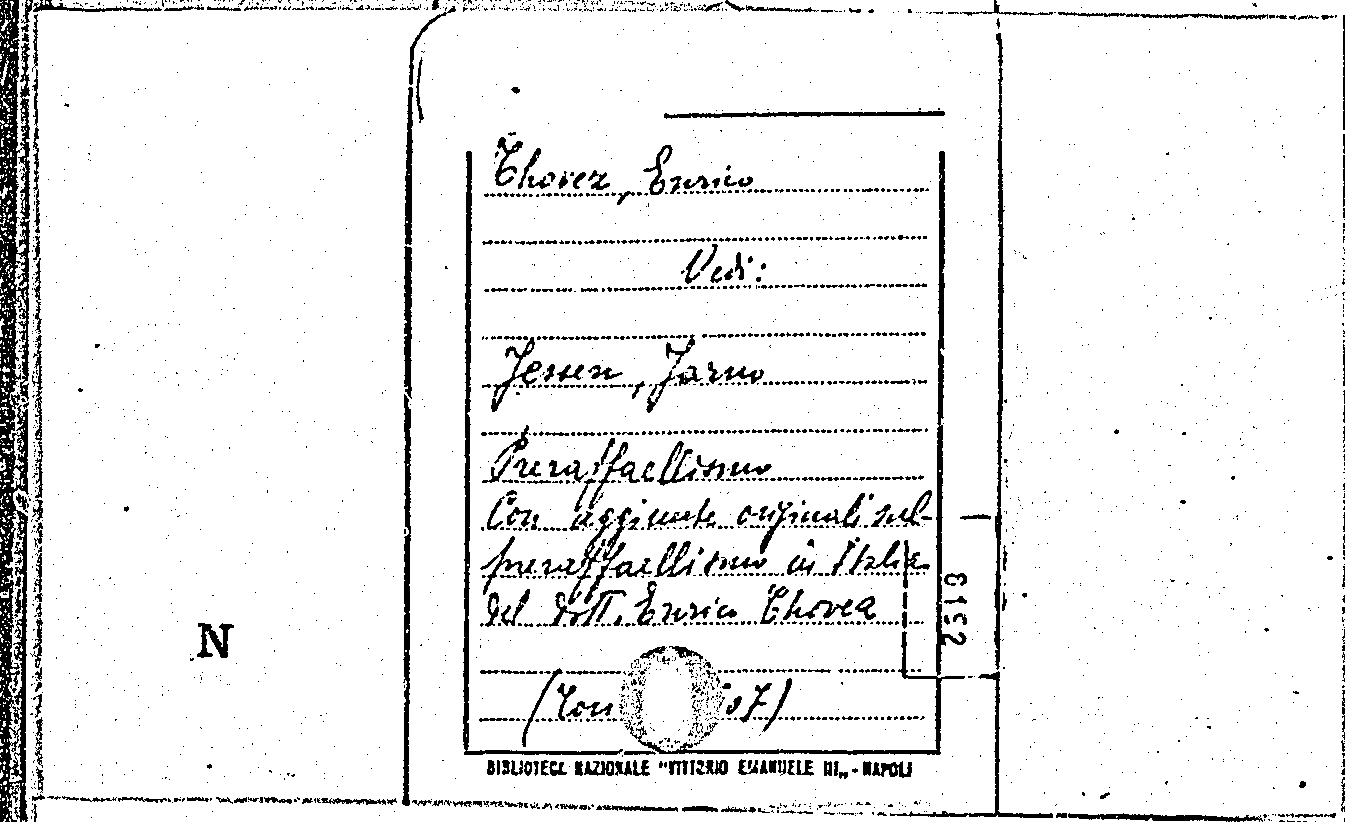 Thovez, Enrico
Vedi:
Jessen, Jarno
Preraffaellismo
Con aggiunte originali sul
preraffaellismo in Italia
del dott. Enrico Thovez
8152
N
BIBLIOTECA NAZIONALE "VITTORIO EMANUELE III„ - NAPOLI